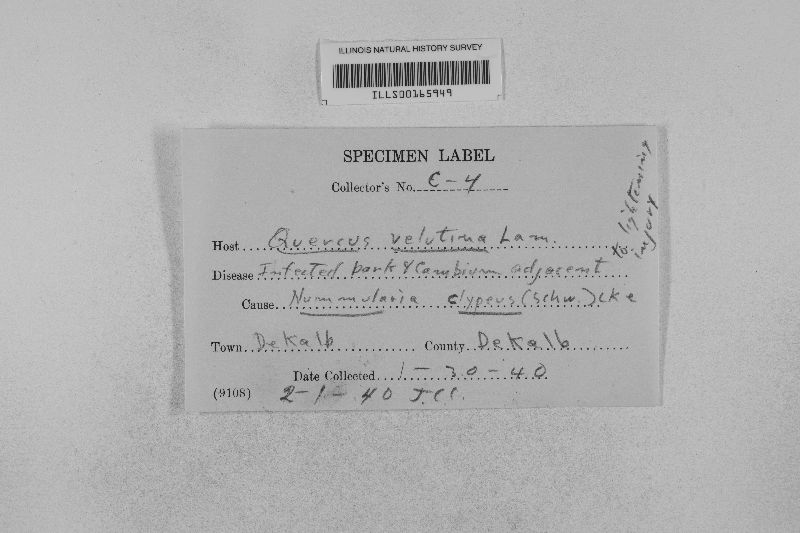 ILLINOIS NATURAL HISTORY SURVEY
ILLS00165949
SPECIMEN LABEL
Collector's No. C-4
Host Quercus velutina Lam.
Disease Infected bark & Cambium adjacent
to lightening
injury
Cause Nummularia clypeus (Schw.) Cke
Town DeKalb County DeKalb
Date Collected 1-30-40
(9108) 2-1-40 J.C.C.